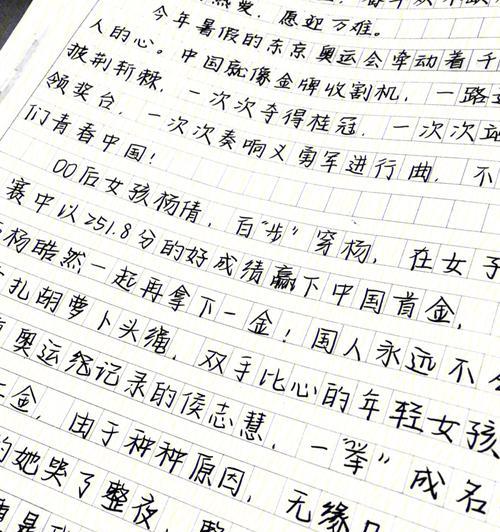 愿迎万难。
今年暑假的东京奥运会牵动着千
人的心。中国就像金牌收割机,一路
披荆斩棘,一次次夺得桂冠,一次次
领奖台,一次次奏响义勇军进行曲,不
们青春中国!
00后女孩杨倩,百“步”穿杨,在女子
赛中以251.8分的好成绩赢下中国首金,
杨皓然一起再拿下一金!国人永远不
扎胡萝卜头绳,双手比心的年轻女孩
奥运纪记录的侯志慧,一“举”成名
金,由于种种原因,无缘
的她哭了整夜,整